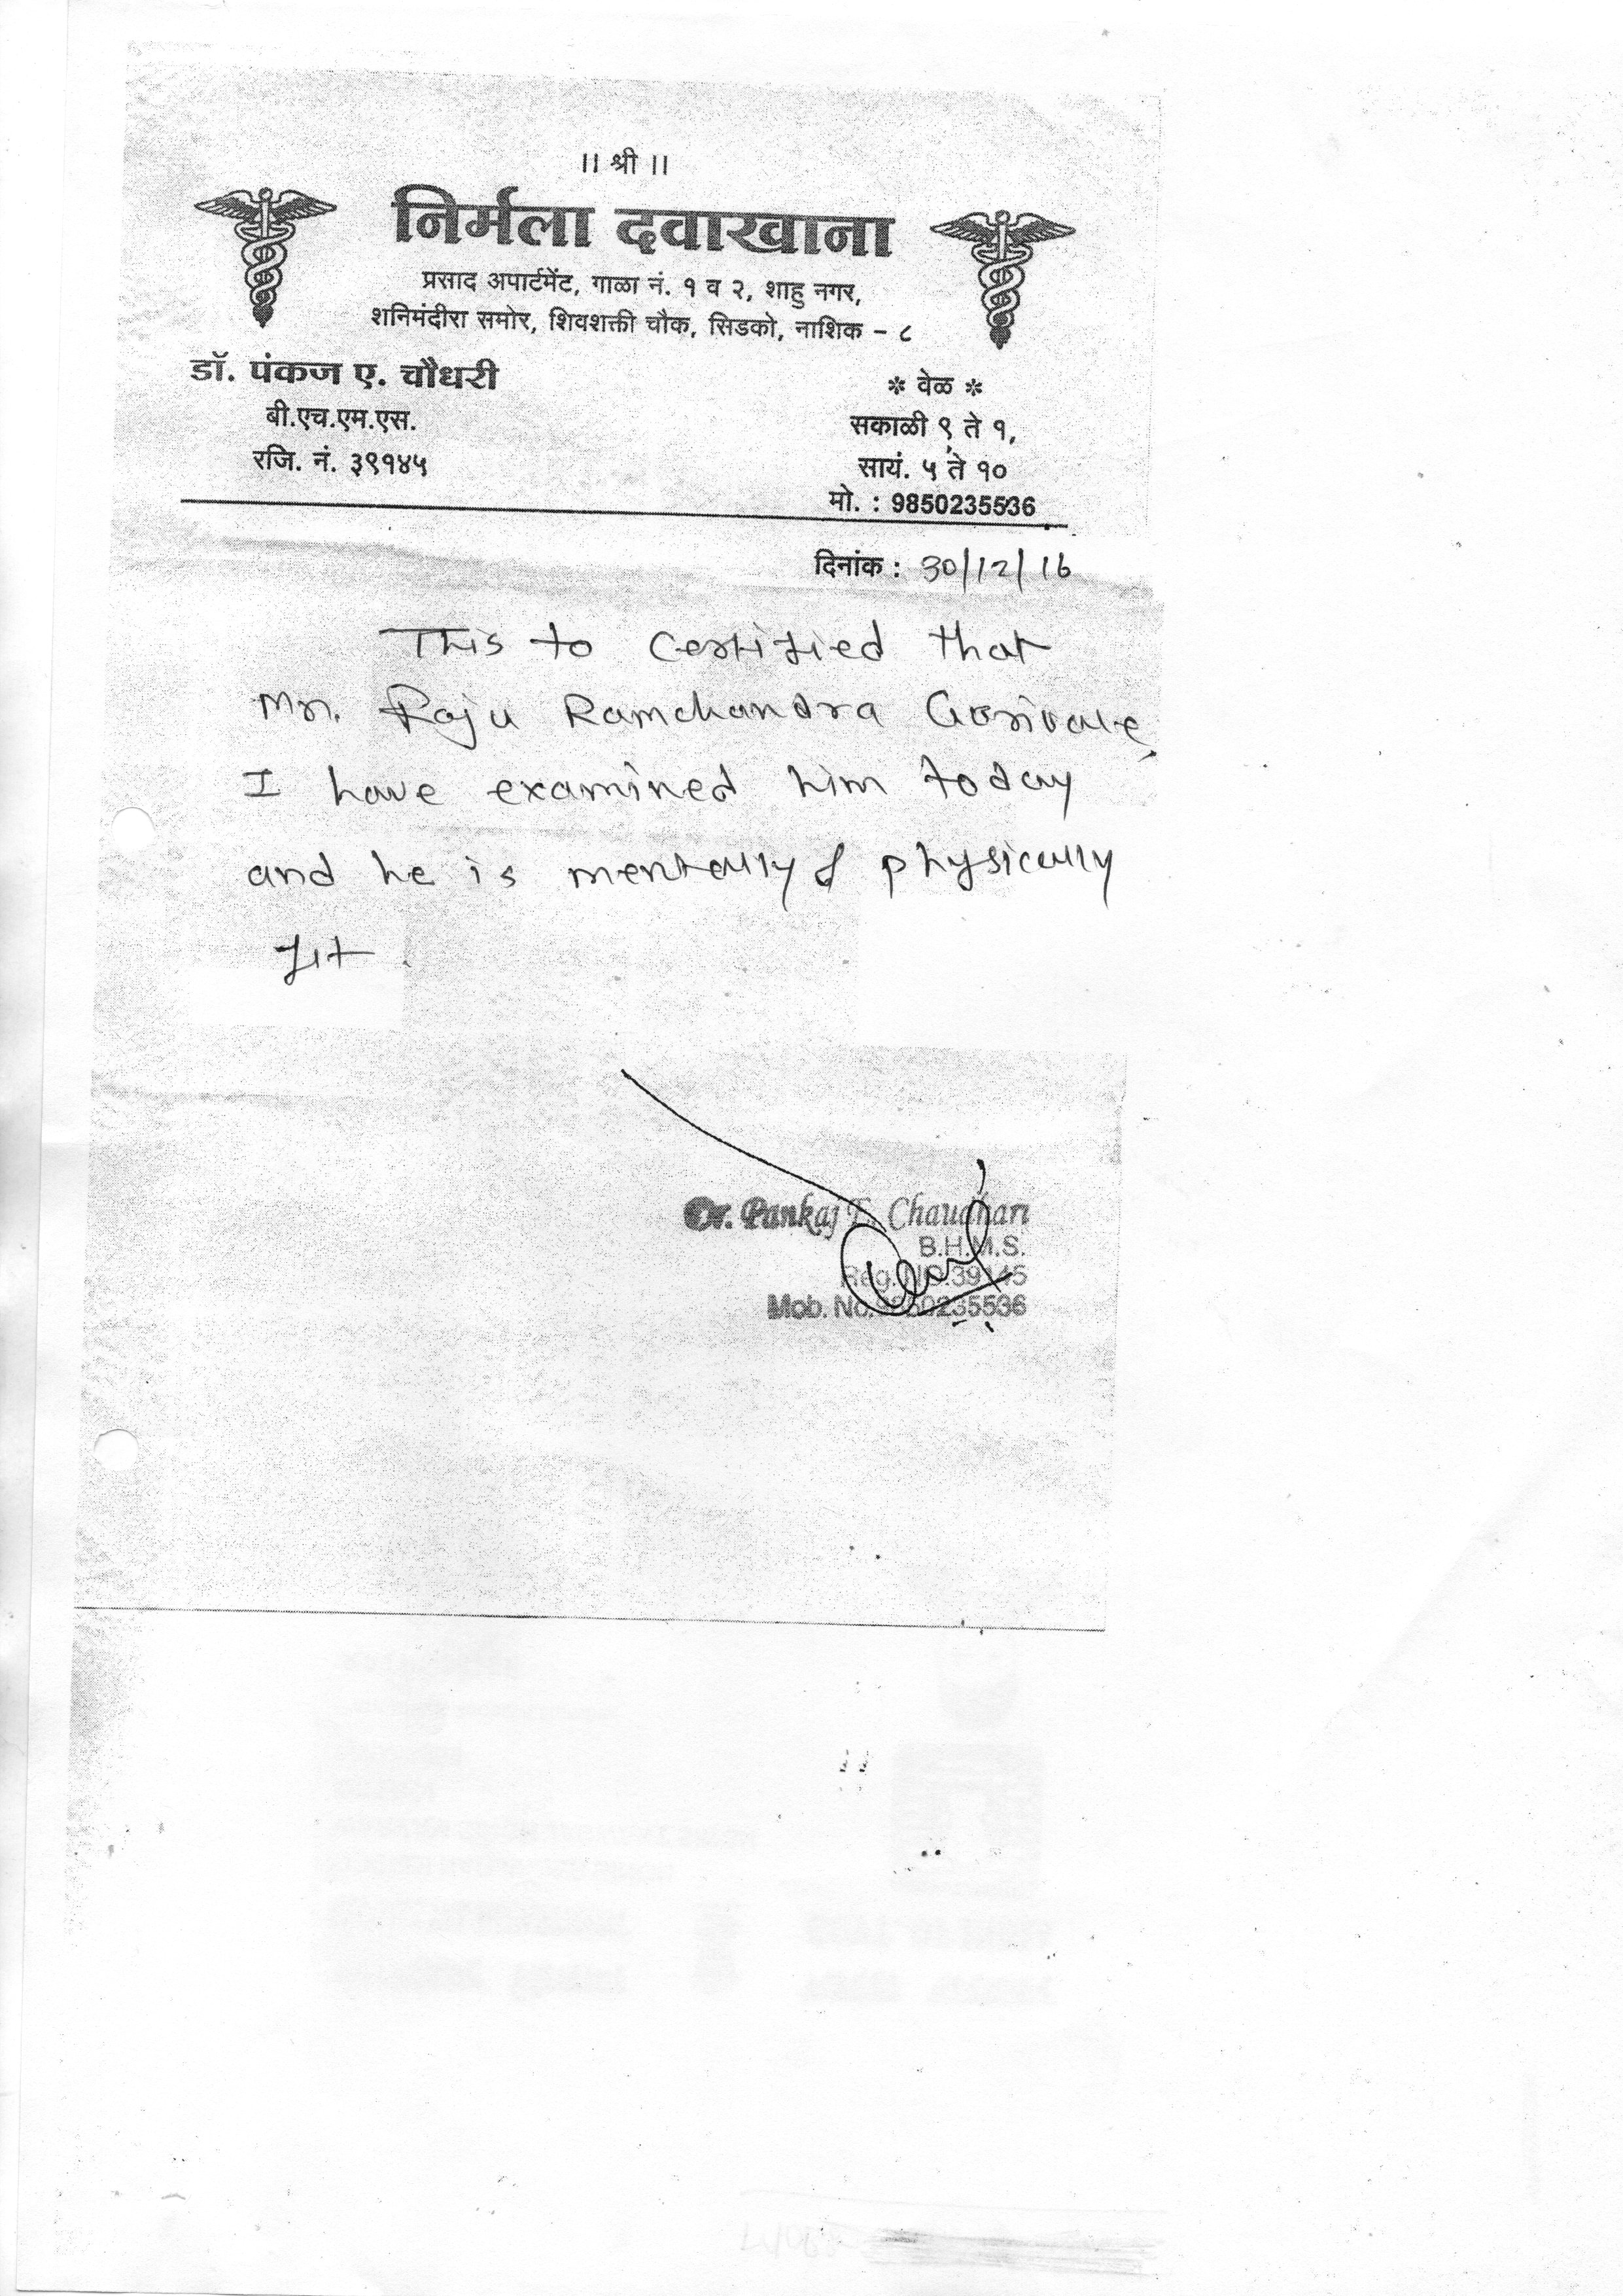 ।। श्री ।।
निर्मला दवाखाना
प्रसाद अपार्टमेंट, गाळा नं. १ व २, शाहु नगर,
शनिमंदीरा समोर, शिवशक्ती चौक, सिडको, नाशिक - ८
डॉ. पंकज ए. चौधरी
बी.एच.एम.एस.
रजि. नं. ३९१४५
* वेळ *
सकाळी ९ ते १,
सायं. ५ ते १०
मो. : 9850235536
दिनांक : 30/12/16
This to Certified that
Mr. Raju Ramchandra Gorivale,
I have examined him today
and he is mentally & physically
fit.
Dr. Pankaj Chaudhari
B.H.M.S.
Reg. NO.39145
Mob. No.9850235536